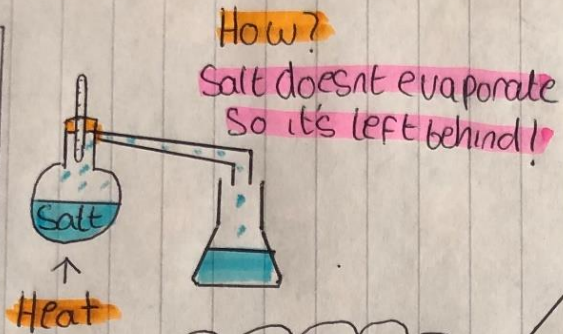 How?
Salt doesnt evaporate
So it's left behind!
Salt
Heat